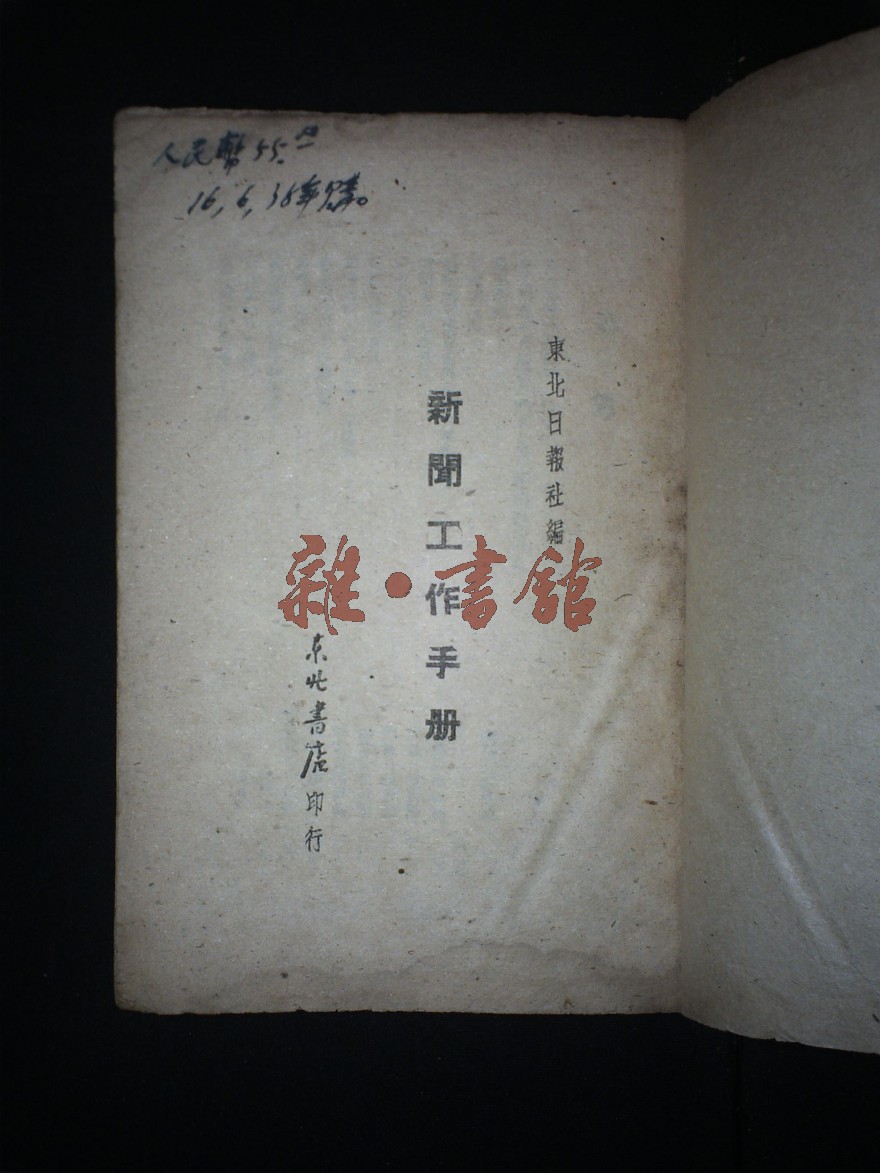 人民幣55.元
16,6,38年購。
東北日報社編
新聞工作手册
東北書店印行
雜·書館